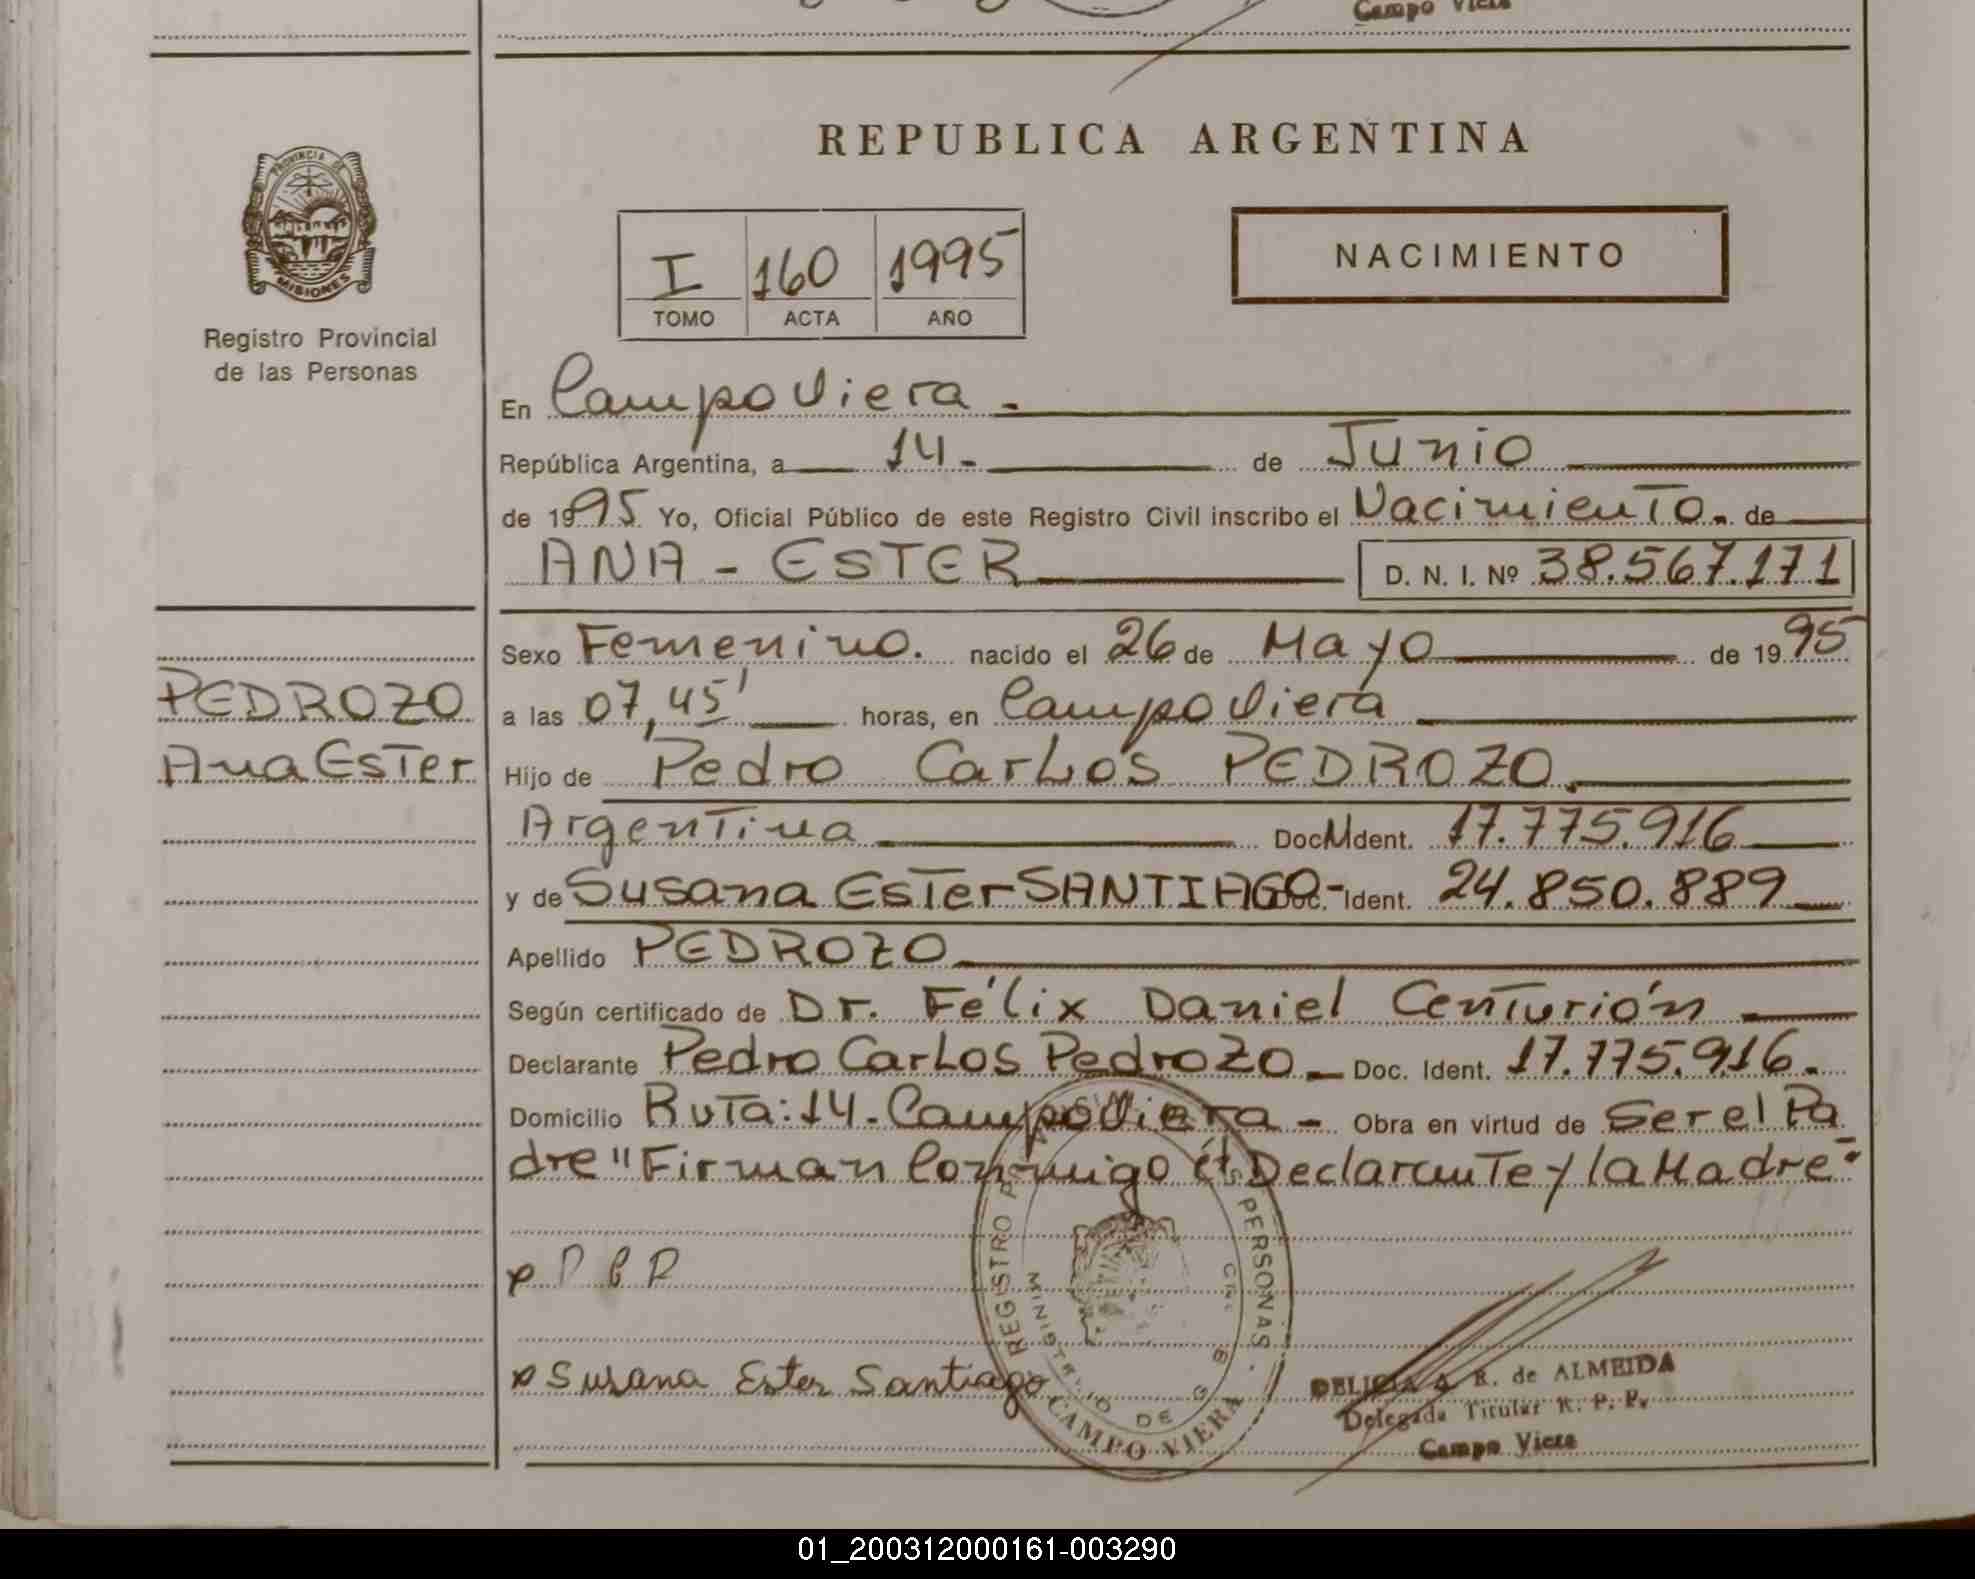 Campo Viera
REPUBLICA ARGENTINA
PROVINCIA DE
MISIONES
Registro Provincial
de las Personas
I 160 1995
TOMO ACTA AÑO
NACIMIENTO
En Campo Viera -
República Argentina, a 14- de Junio
de 1995 Yo, Oficial Público de este Registro Civil inscribo el Nacimiento. de
ANA - ESTER D. N. I. Nº 38.567.171
Sexo Femenino. nacido el 26 de Mayo de 1995
PEDROZO
Ana Ester
a las 07,45' horas, en Campo Viera
Hijo de Pedro Carlos PEDROZO.
Argentina Doc. Ident. 17.775.916
y de Susana Ester SANTIAGO- Doc. Ident. 24.850.889
Apellido PEDROZO
Según certificado de Dr. Félix Daniel Centurión
Declarante Pedro Carlos Pedrozo - Doc. Ident. 17.775.916.
Domicilio Ruta: 14 - Campo Viera - Obra en virtud de Ser el Pa
dre "Firman Conmigo el Declarante y la Madre"-
Susana Ester Santiago
REGISTRO PERSONAS
MINISTERIO DE
CAMPO VIERA
DELICIA A. R. de ALMEIDA
Delegada Titular R. P. P.
Campo Viera
01_200312000161-003290